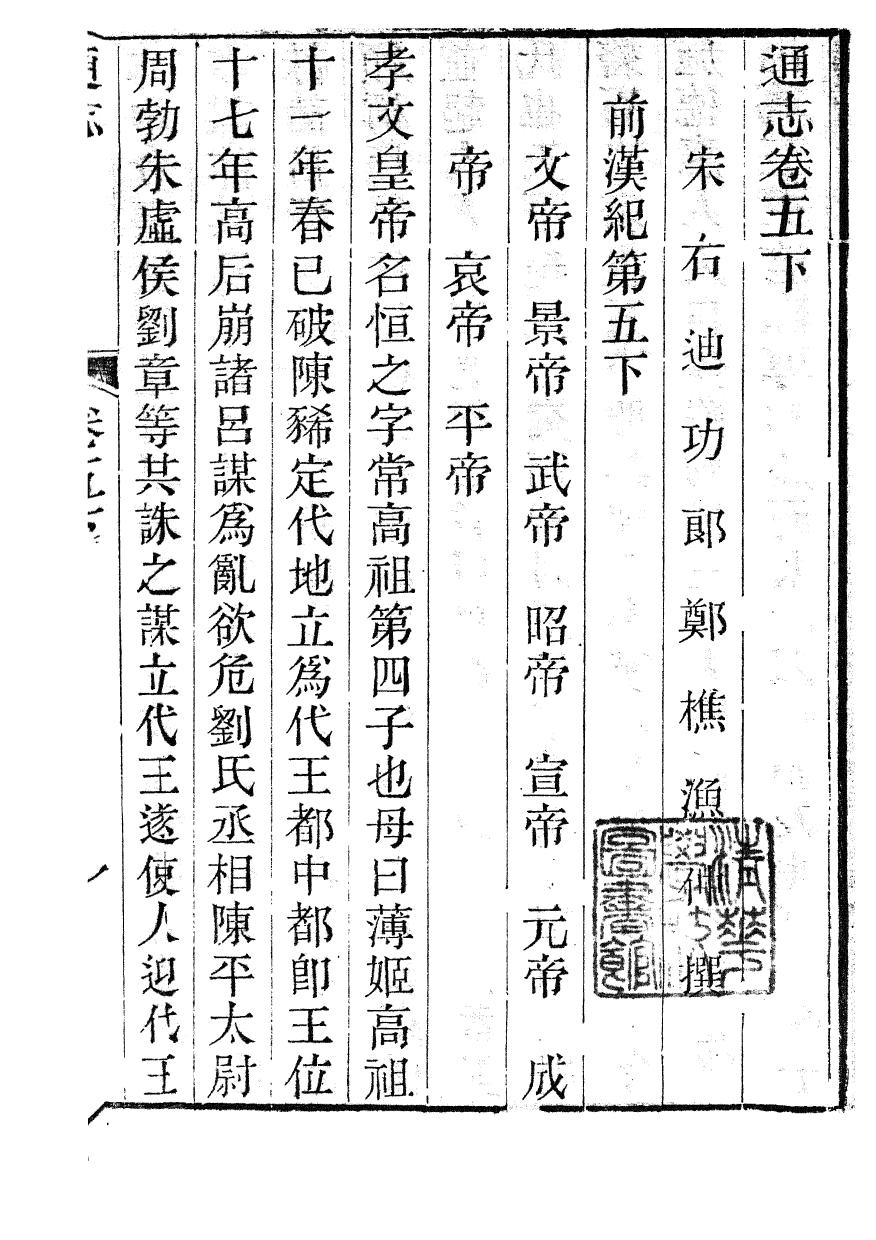 通志卷五下
宋右迪功郎鄭樵漁仲撰
前漢紀第五下
文帝 景帝 武帝 昭帝 宣帝 元帝 成
帝 哀帝 平帝
孝文皇帝名恒之字常高祖第四子也母曰薄姬高祖
十一年春已破陳豨定代地立爲代王都中都卽王位
十七年高后崩諸呂謀爲亂欲危劉氏丞相陳平太尉
周勃朱虛侯劉章等共誅之謀立代王遂使人迎代王
通志
卷五下
清華學校圖書館